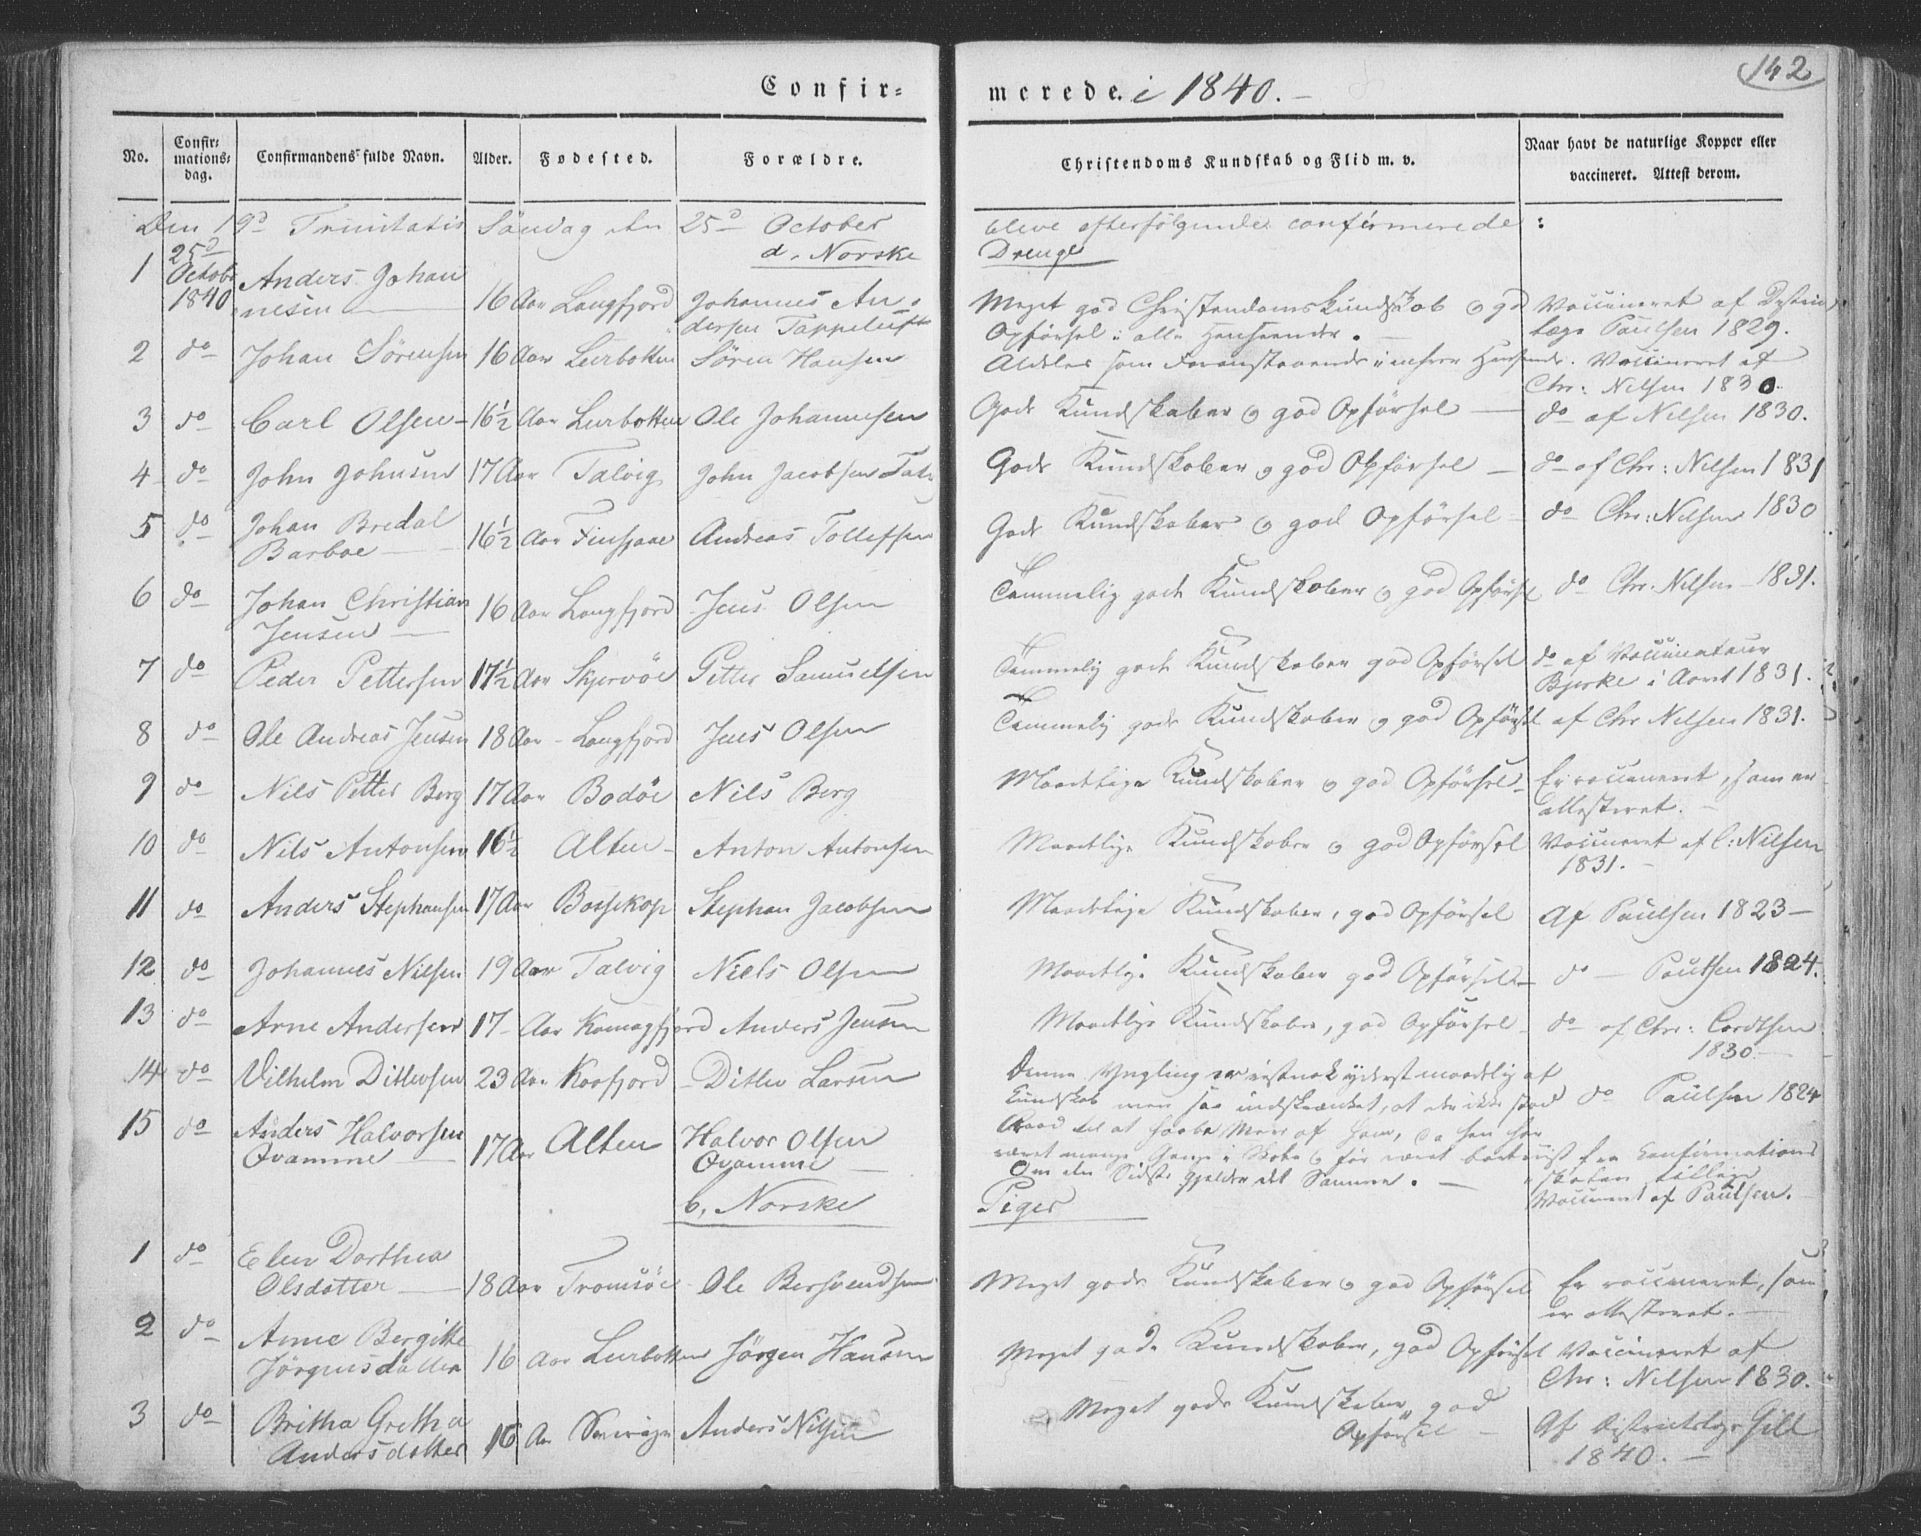 142
Confir=
merede. i 1840.
No.
Confir=
mations=
dag.
Confirmandens fulde Navn.
Alder.
Fødested.
Forældre.
Christendoms Kundskab og Flid m. v.
Naar havt de naturlige Kopper eller
vaccineret. Attest derom.
Den 19de Trinitatis Søndag den 25de October bleve efterfølgende confirmerede :
a. Norske Drenge
1 25de Octobr 1840 Anders Johan
nesen 16 Aar Langfjord Johannes An
dersen Tappeluft
Meget god Christendomskundskab og god
Opførsel i alle Henseender.
Vaccineret af District
læge Paulsen 1829.
2 do Johan Sørensen 16 Aar Lerbotten Søren Hansen
Aldeles som Foranstaaende i enhver Henseende. Vaccineret af
Chr: Nilsen 1830.
3 do Carl Olsen 16½ Aar Lerbotten Ole Johannesen Gode Kundskaber og god Opførsel do af Nilsen 1830.
4 do John Johnsen 17 Aar Talvig John Jacobsen Gode Kundskaber og god Opførsel do af Chr: Nilsen 1831
5 do Johan Bredal
Barboe 16½ Aar Andreas Tollefsen Gode Kundskaber og god Opførsel do Chr: Nilsen 1830
6 do Johan Christian
Jensen 16 Aar Langfjord Jens Olsen Temmelig gode Kundskaber og god Opførsel do Chr. Nilsen 1831.
7 do Peder Pettersen 17½ Aar Skjervöe Petter Samuelsen Temmelig gode Kundskaber god Opførsel do af Vaccinateur
Bjerke i Aaret 1831.
8 do Ole Andreas Jensen 18 Aar Langfjord Jens Olsen Temmelig gode Kundskaber og god Opførsel af Chr Nilsen 1831.
9 do Nils Petter Berg 17 Aar Bodöe Nils Berg Maadelige Kundskaber og god Opførsel Er vaccineret, som er
attesteret.
10 do Nils Antonsen 16½ Alten Anton Antonsen Maadelige Kundskaber og god Opførsel Vaccineret af C: Nilsen
1831.
11 do Anders Stephansen 17 Aar Bossekop Stephan Jacobsen Maadelige Kundskaber, god Opførsel Af Paulsen 1823
12 do Johannes Nilsen 19 Aar Talvig Niels Olsen Maadelige Kundskaber god Opførsel do Paulsen 1824.
13 do Arne Andersen 17 Aar Komagfjord Anders Jensen Maadelige Kundskaber, god Opførsel do af Chr: Cordtsen
1830
14 do Vilhelm Ditlevsen 23 Aar Kaafjord Ditlev Larsen
Denne Yngling er vistnok yderst maadelig af
Kundskab men saa indskrænket, at der ikke stod
Raad til at haabe Mere af ham, da han har
været mange Gange i Skole og før været bortviist fra Confirmations
skolen
Om den Sidste gjelder det Samme.
do Paulsen 1824
15 do Anders Halvorsen
Qvamme 17 Aar Alten Halvor Olsen
Qvamme
Vaccineret af Paulsen.
b, Norske Piger
1 do Elen Dorthea
Olsdatter 18 Aar Tromsöe Ole Bersvendsen Meget gode Kundskaber og god Opførsel Er vaccineret, som
er attesteret.
2 do Anne Bergitte
Jörgensdatter 16 Aar Lerbotten Jörgen Hansen Meget gode Kundskaber, god Opførsel Vaccineret af
Chr: Nilsen 1830.
3 do Britha Gretha
Andersdatter 16 Aar Anders Nilsen Meget gode Kundskaber, god
Opførsel
Af Districtslæge Gill
1840.